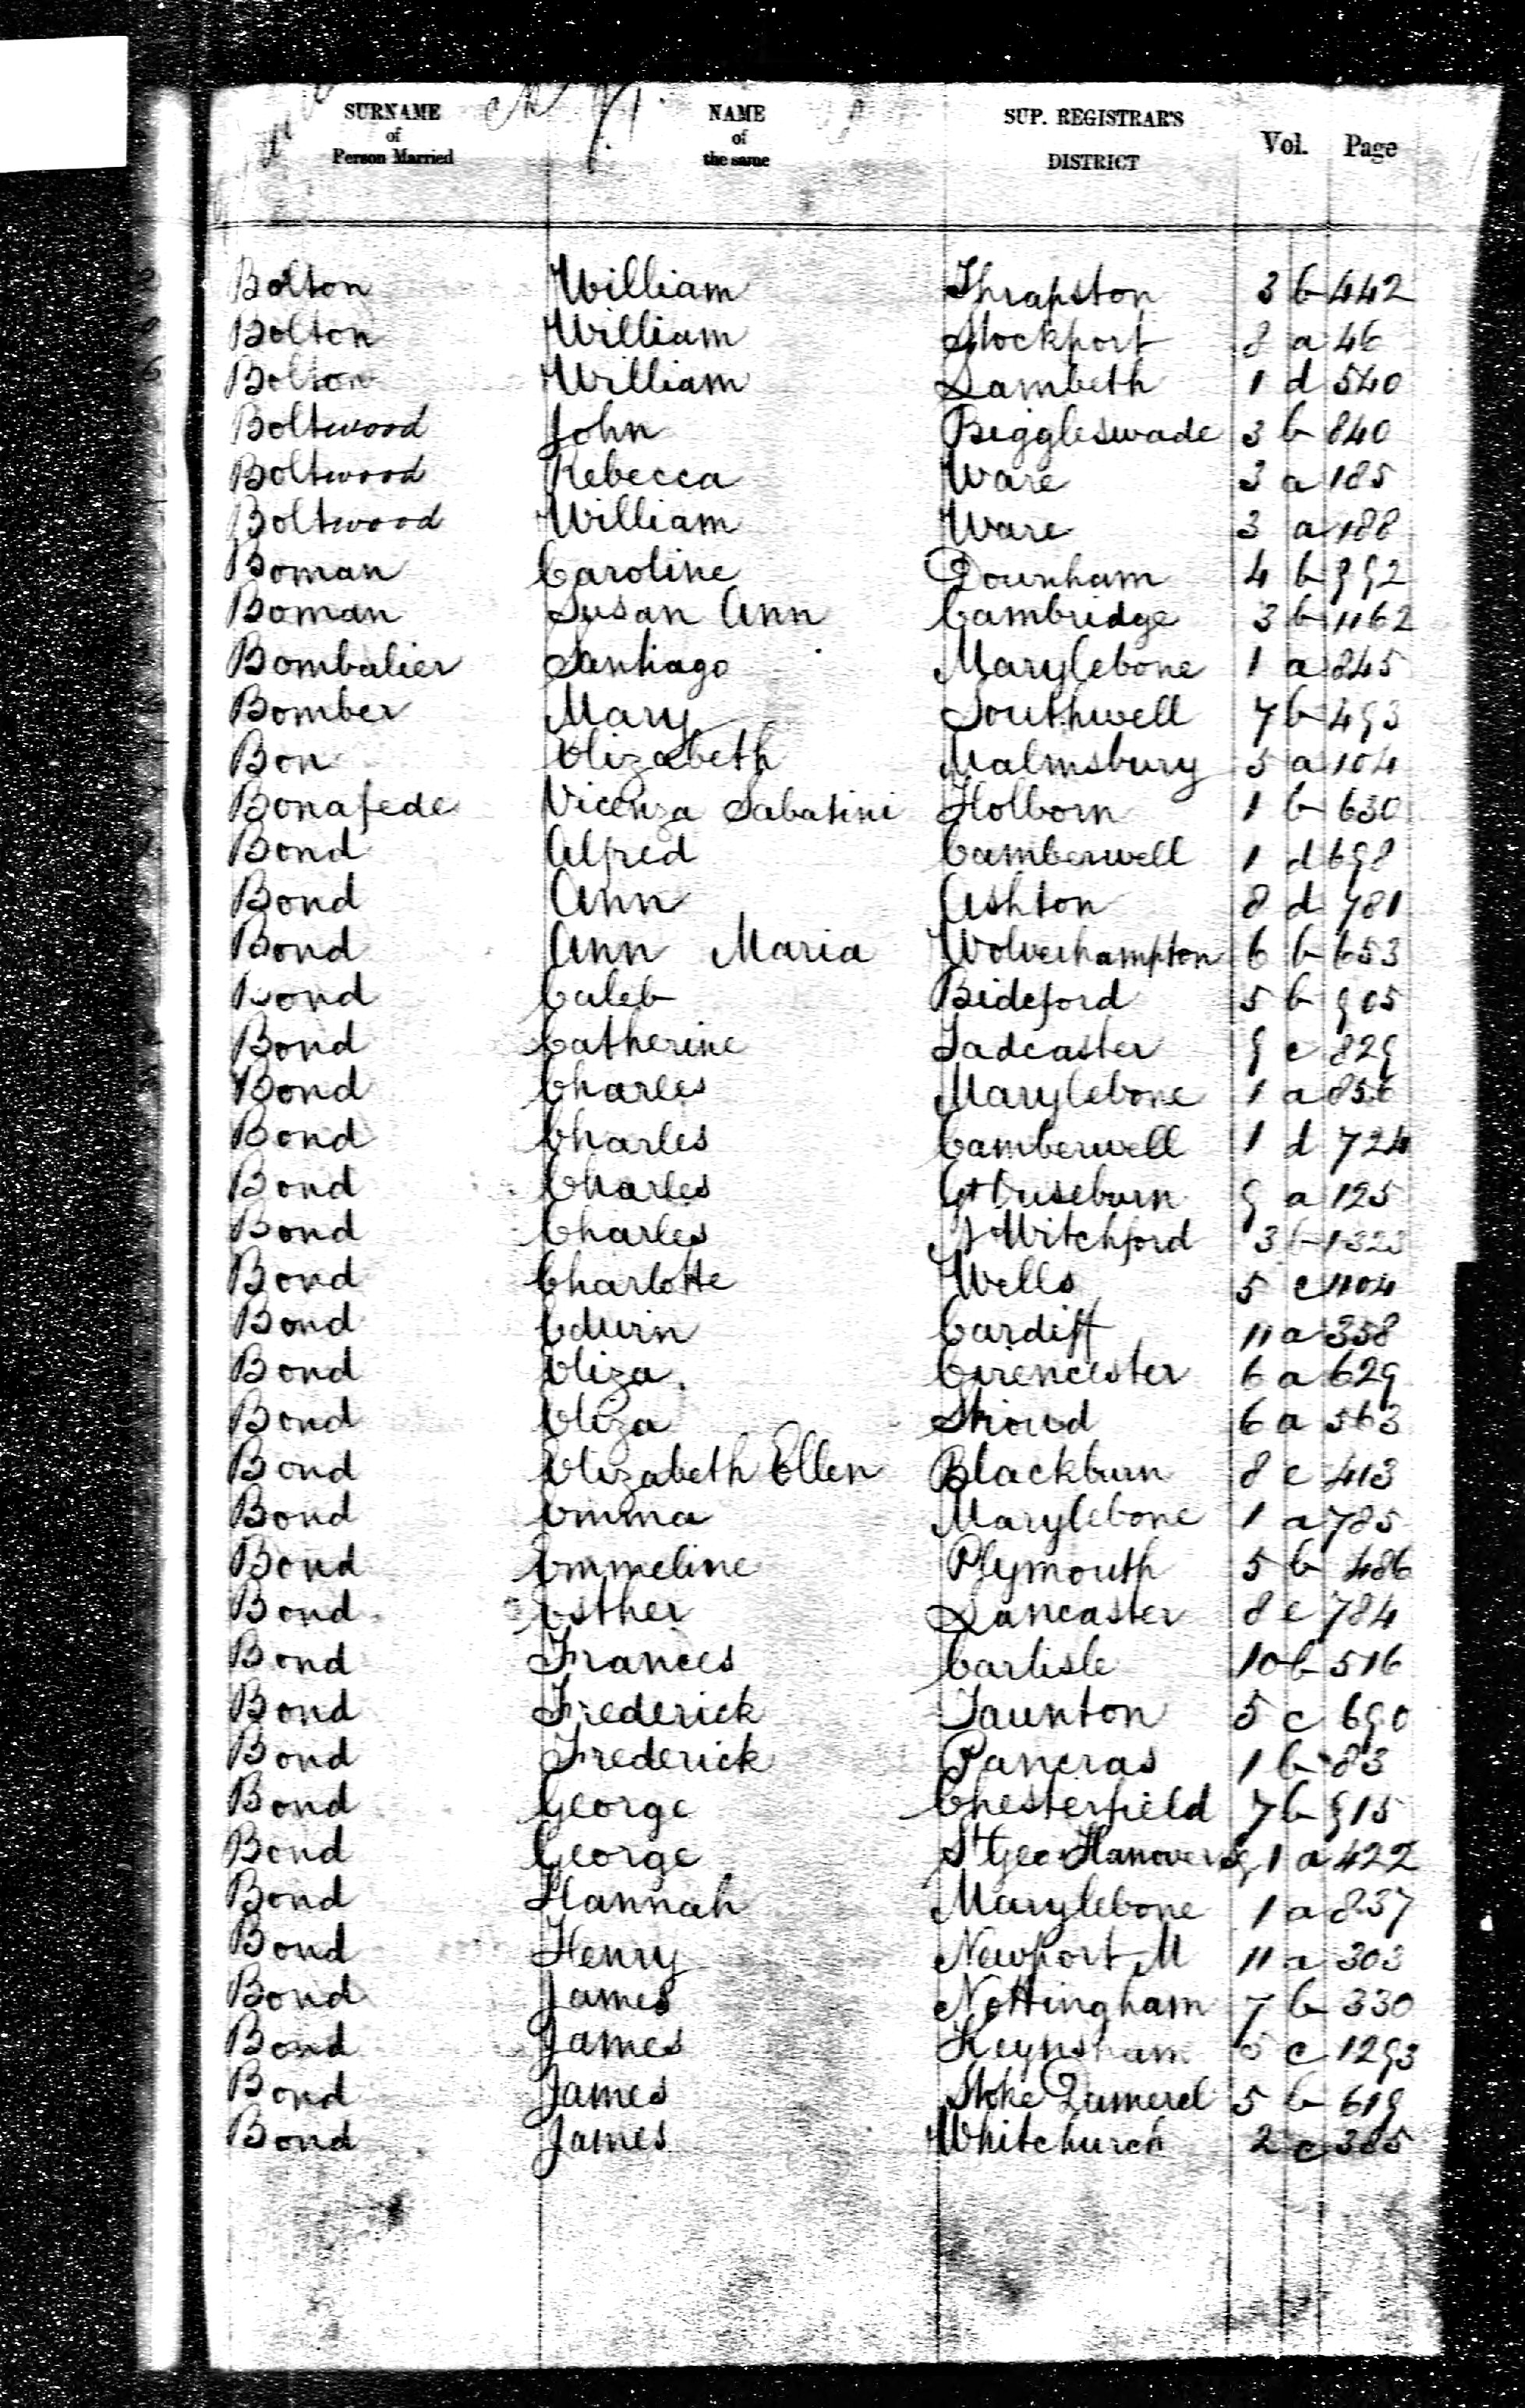 SURNAME of Person Married NAME of the same SUP. REGISTRAR'S DISTRICT Vol. Page
Bolton William Thrapston 3 b 442
Bolton William Stockport 8 a 46
Bolton William Lambeth 1 d 540
Boltwood John Biggleswade 3 b 840
Boltwood Rebecca Ware 3 a 185
Boltwood William Ware 3 a 188
Boman Caroline Downham 4 b 992
Boman Susan Ann Cambridge 3 b 1162
Bombalier Santiago Marylebone 1 a 845
Bomber Mary Southwell 7 b 493
Bon Elizabeth Malmsbury 5 a 104
Bonafede Vicenza Sabatini Holborn 1 b 630
Bond Alfred Camberwell 1 d 698
Bond Ann Ashton 8 d 781
Bond Ann Maria Wolverhampton 6 b 653
Bond Caleb Bideford 5 b 905
Bond Catherine Tadcaster 9 c 829
Bond Charles Marylebone 1 a 856
Bond Charles Camberwell 1 d 724
Bond Charles Gt Ouseburn 9 a 125
Bond Charles Witchford 3 b 1323
Bond Charlotte Wells 5 c 1104
Bond Edwin Cardiff 11 a 358
Bond Eliza Cirencester 6 a 629
Bond Eliza Stroud 6 a 563
Bond Elizabeth Ellen Blackburn 8 e 413
Bond Emma Marylebone 1 a 785
Bond Emmeline Plymouth 5 b 486
Bond Esther Lancaster 8 e 784
Bond Frances Carlisle 10 b 516
Bond Frederick Taunton 5 c 690
Bond Frederick Pancras 1 b 83
Bond George Chesterfield 7 b 915
Bond George St Geo Hanover Sq 1 a 422
Bond Hannah Marylebone 1 a 837
Bond Henry Newport M 11 a 303
Bond James Nottingham 7 b 330
Bond James Keynsham 5 c 1293
Bond James Stoke Damerel 5 b 619
Bond James Whitchurch 2 c 385